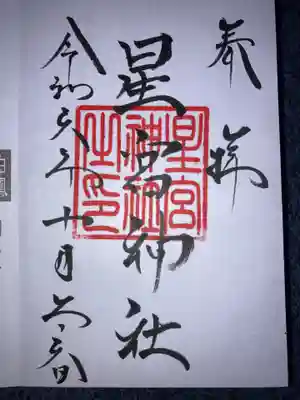 奉拝
星宮神社
星宮神社之印
令和六年十月六日